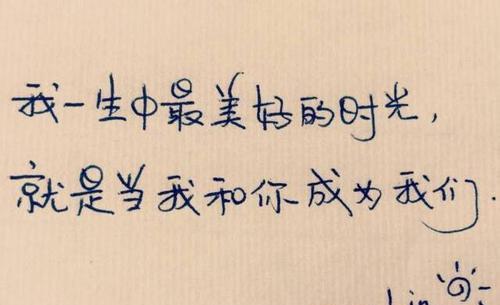 我一生中最美好的时光,
就是当我和你成为我们.